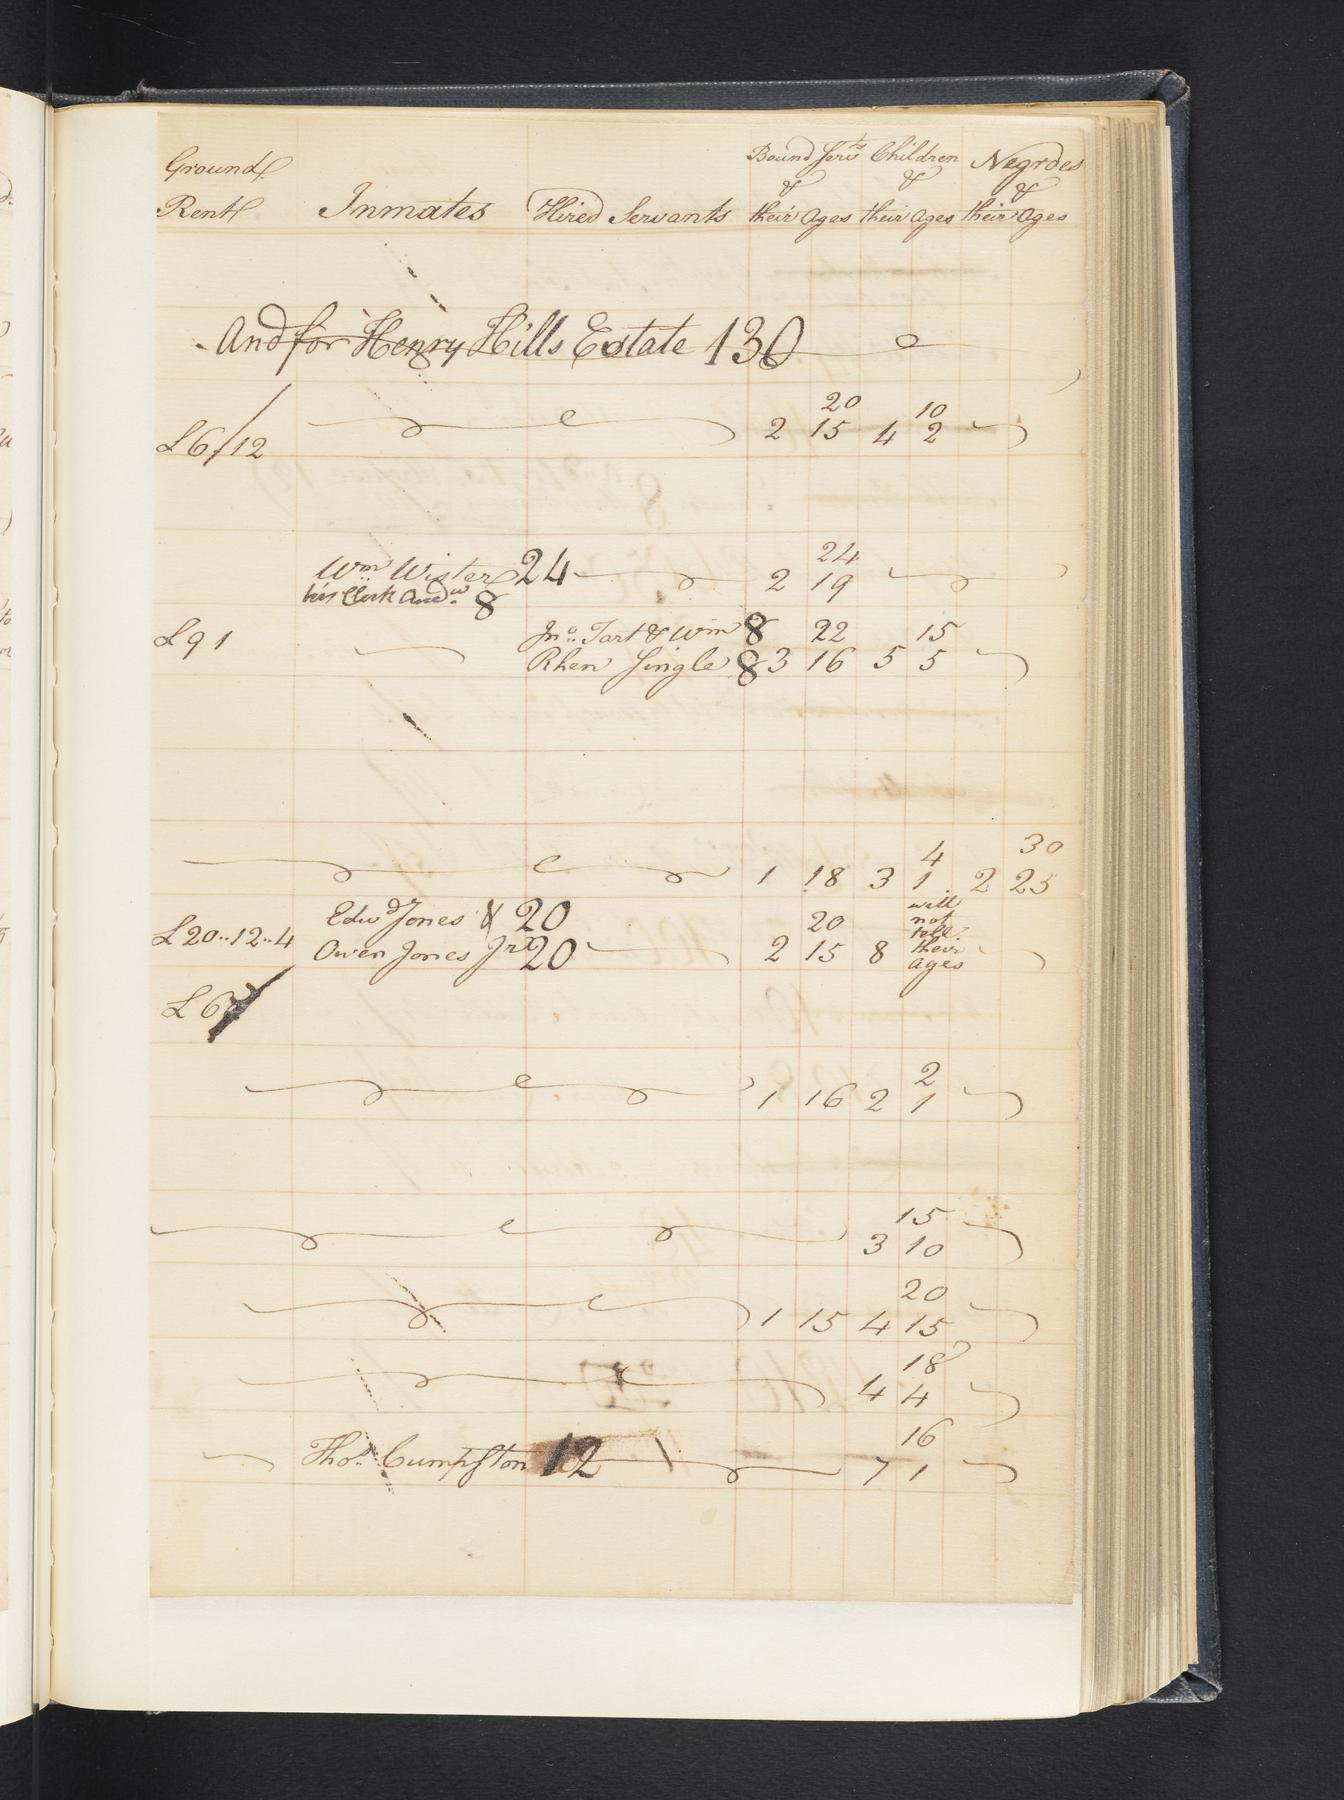 Ground Rent	Inmates	Hired Servants	Bound Servts & their Ages	Children & their Ages	Negroes & their Ages
And for Henry Hills Estate 130
£6/12	2	20 15	4	10 2
Wm Wister 24	2	24 19
his Clerk Andw 8
£91	Jno Tart & Wm 8
Rhen Single 8	3	22 16	5	15 5
1	18	3	4 1	2	30 25
£20..12..4	Edwd Jones & 20
Owen Jones Jr 20	2	20 15	8	will not tell their ages
£6
1	16	2	2 1
3	15 10
1	15	4	20 15
4	18 4
Thos Cumpston 12	7	16 1